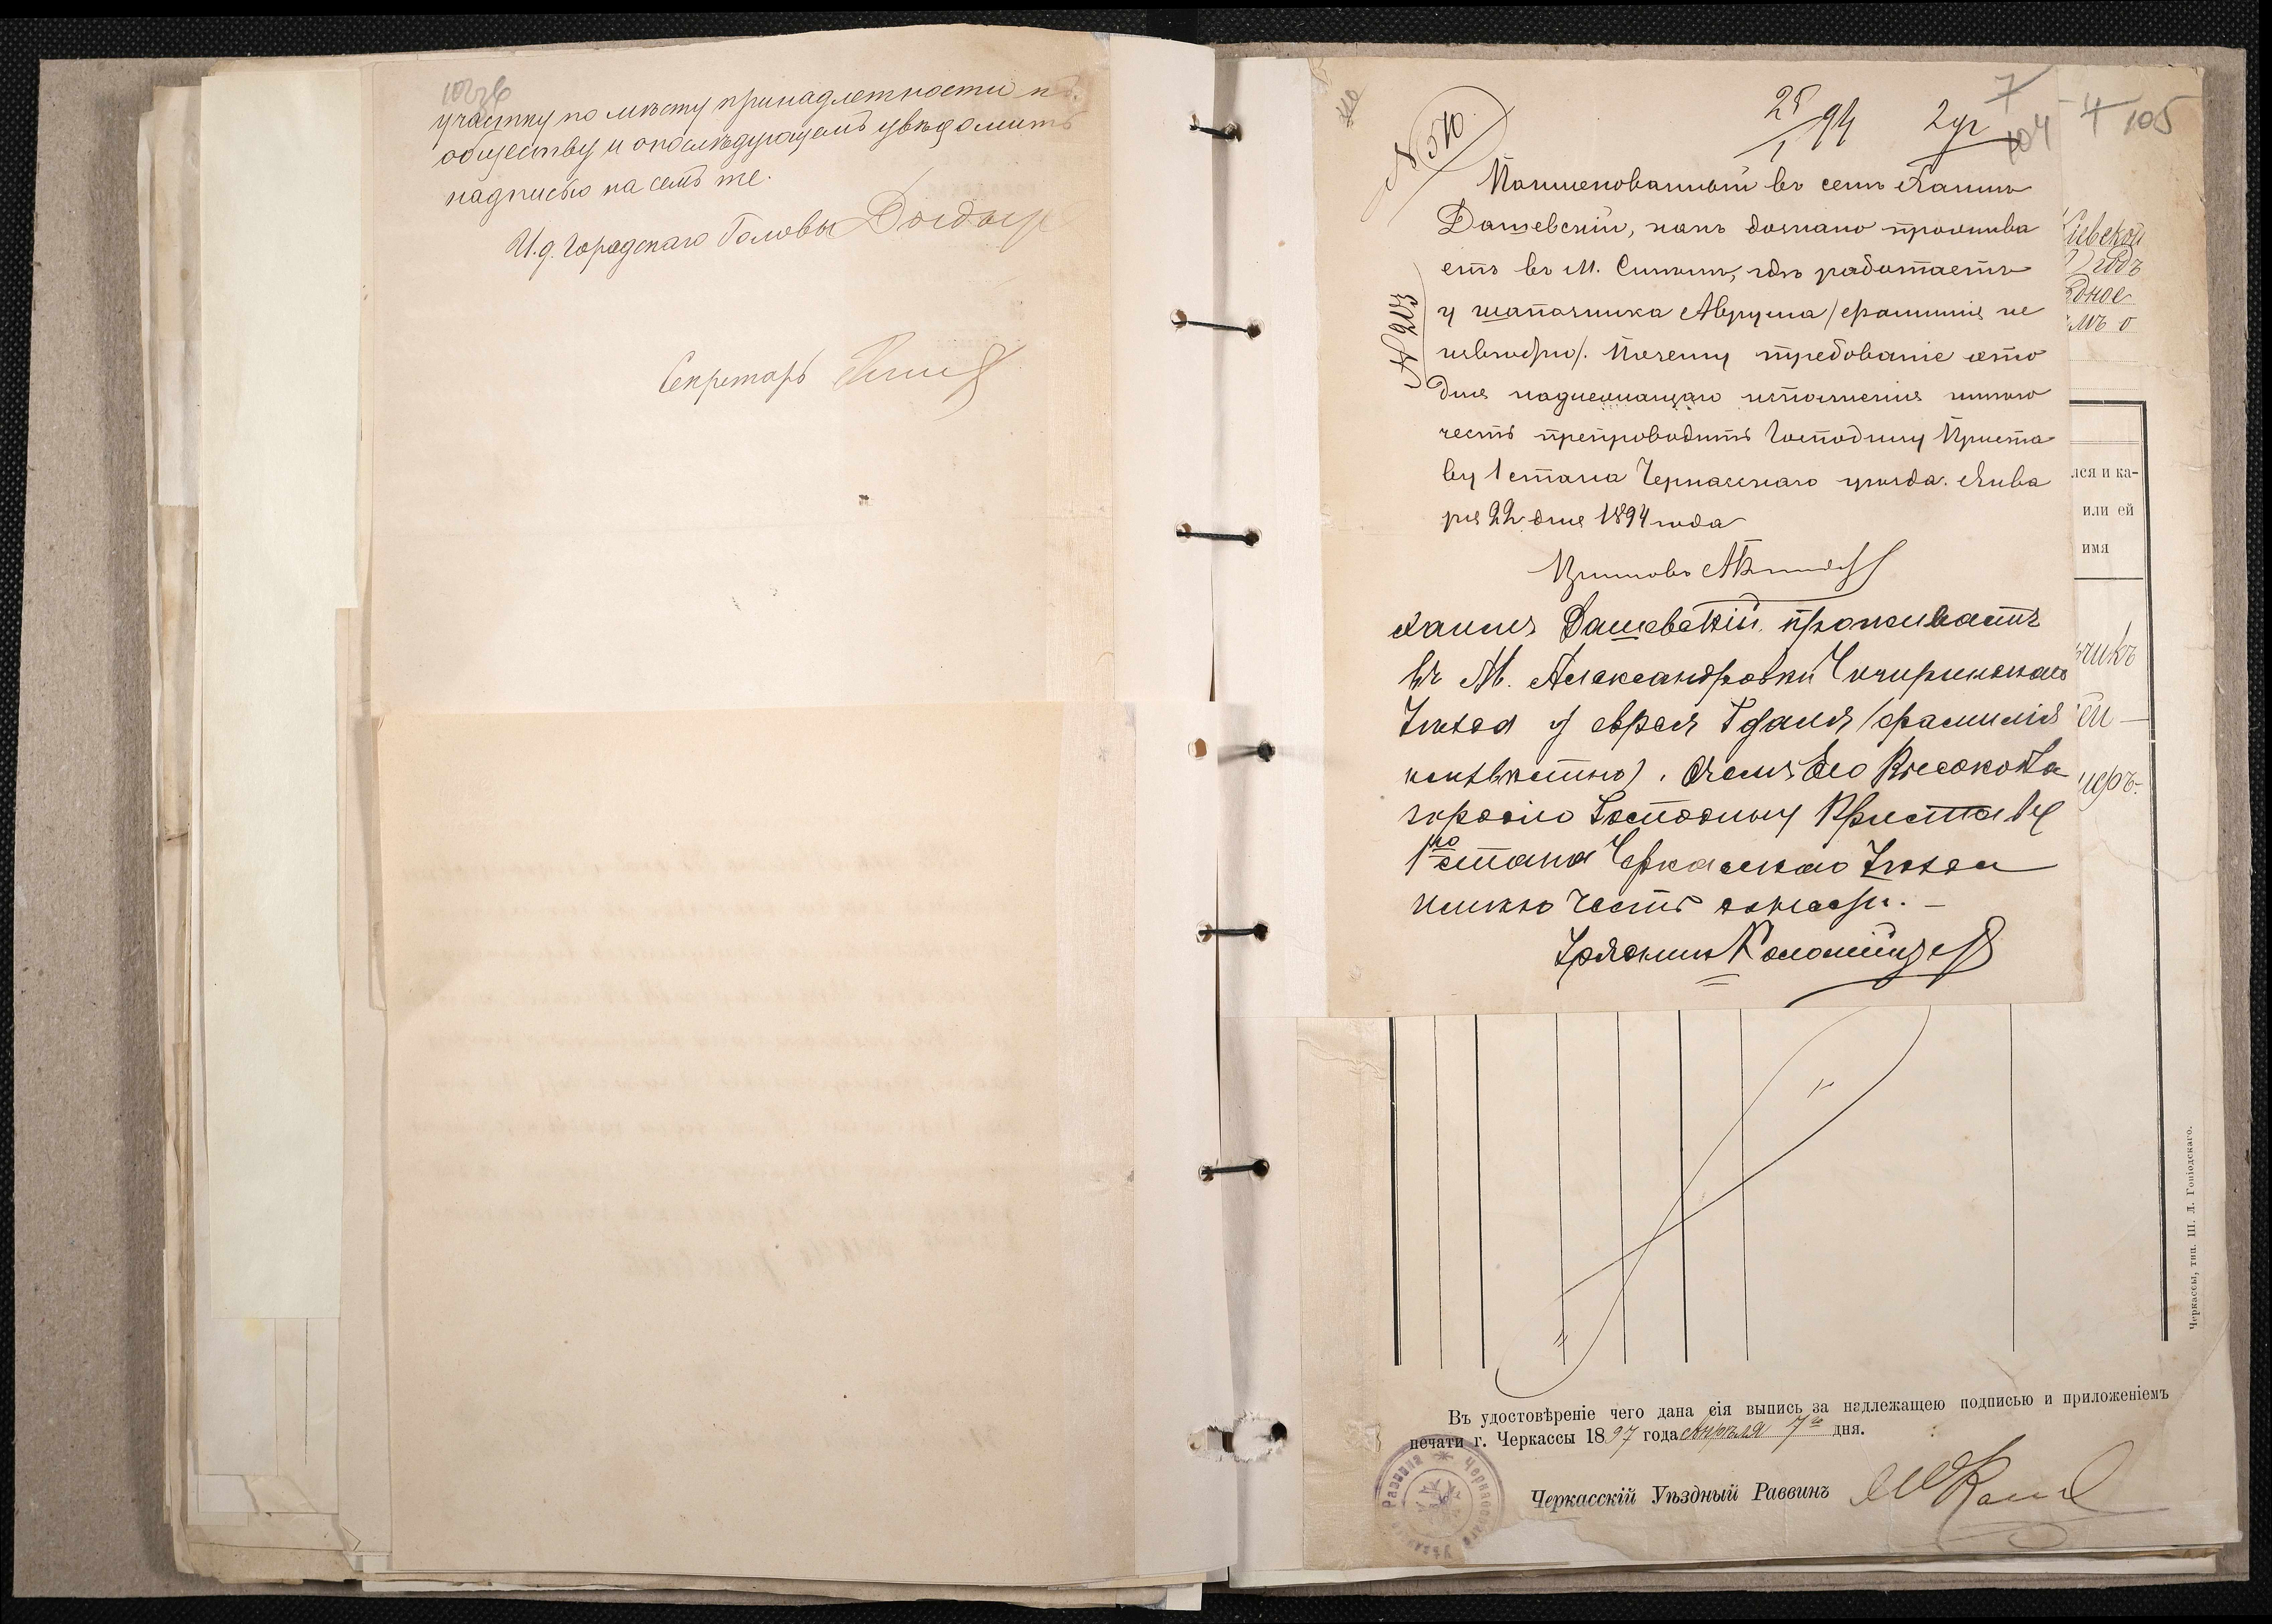 участку по мѣсту принадлежности къ
обществу и о послѣдующемъ увѣдомить
надписью на семъ же.
И.д. Городскаго Головы
Секретарь
№ 510
25/1 94
2 уг
7
104
4 105
№ 213
Поименованный въ семъ Хаимъ
Дашевскій, какъ дознано прожива
етъ въ М. Смѣлѣ, гдѣ работаетъ
у шапошника Аврума /фамилія не
извѣстно/. Почему требованіе это
для надлежащаго исполненія имѣю
честь препроводить Господину Приста
ву 1 стана Черкасскаго уѣзда. Янва
ря 22 дня 1894 года
Приставъ
Хаимъ Дашевскій проживаетъ
въ М. Александровки Чигиринскаго
Уѣзда у еврея Гдаля /фамилія
неизвѣстно). О чемъ Его Высокобла
городію Господину Приставу
1го стана Черкасскаго Уѣзда
имѣю честь донести. —
Урядникъ Коломіецъ
Кіевской
годъ
лся и ка-
или ей
имя
Въ удостовѣреніе чего дана сія выпись за надлежащею подписью и приложеніемъ
печати г. Черкассы 1897 года Апрѣля 7го дня.
Черкасскій Уѣздный Раввинъ
Черкассы, тип. Ш. Л. Гоніодскаго.